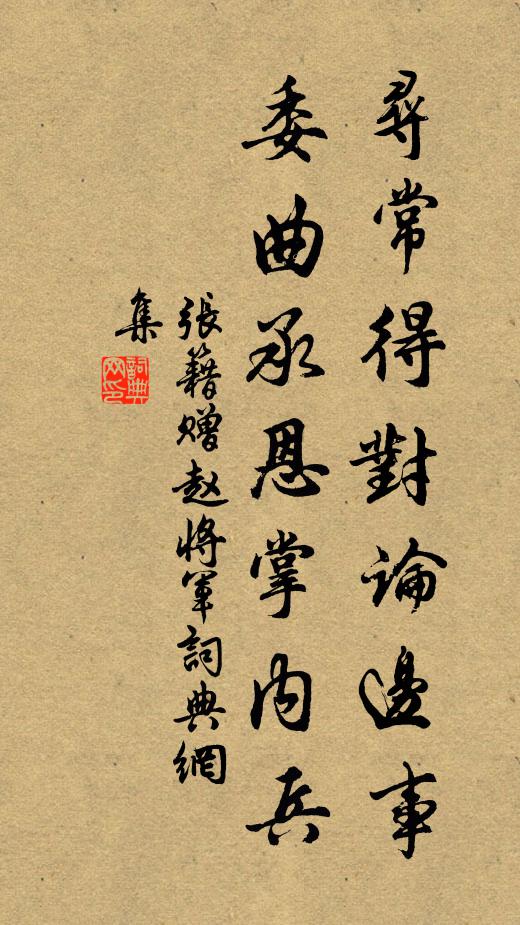 尋常得對論邊事
委曲承恩掌内兵
張籍赠赵将軍詞典網
集
詞典
网印